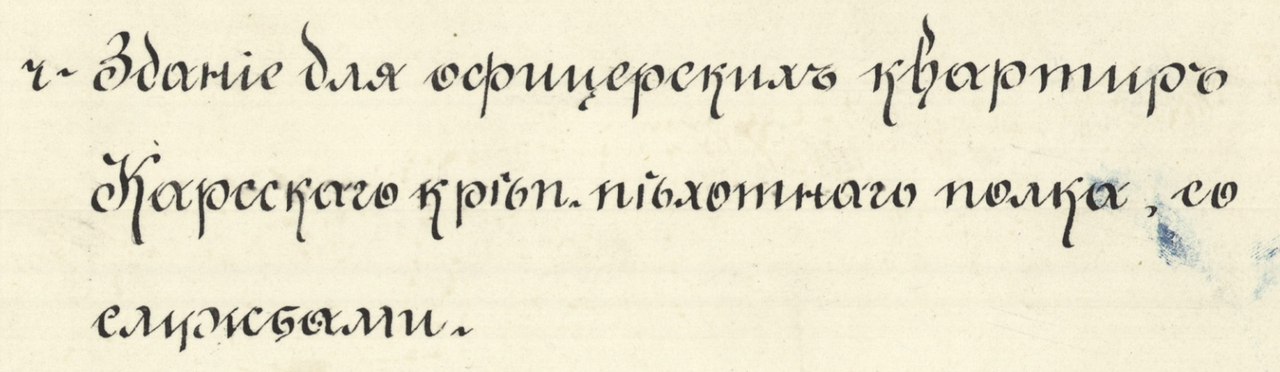 ч. Зданіе для офицерскихъ квартиръ
Карсскаго крѣп. пѣхотнаго полка, со
службами.